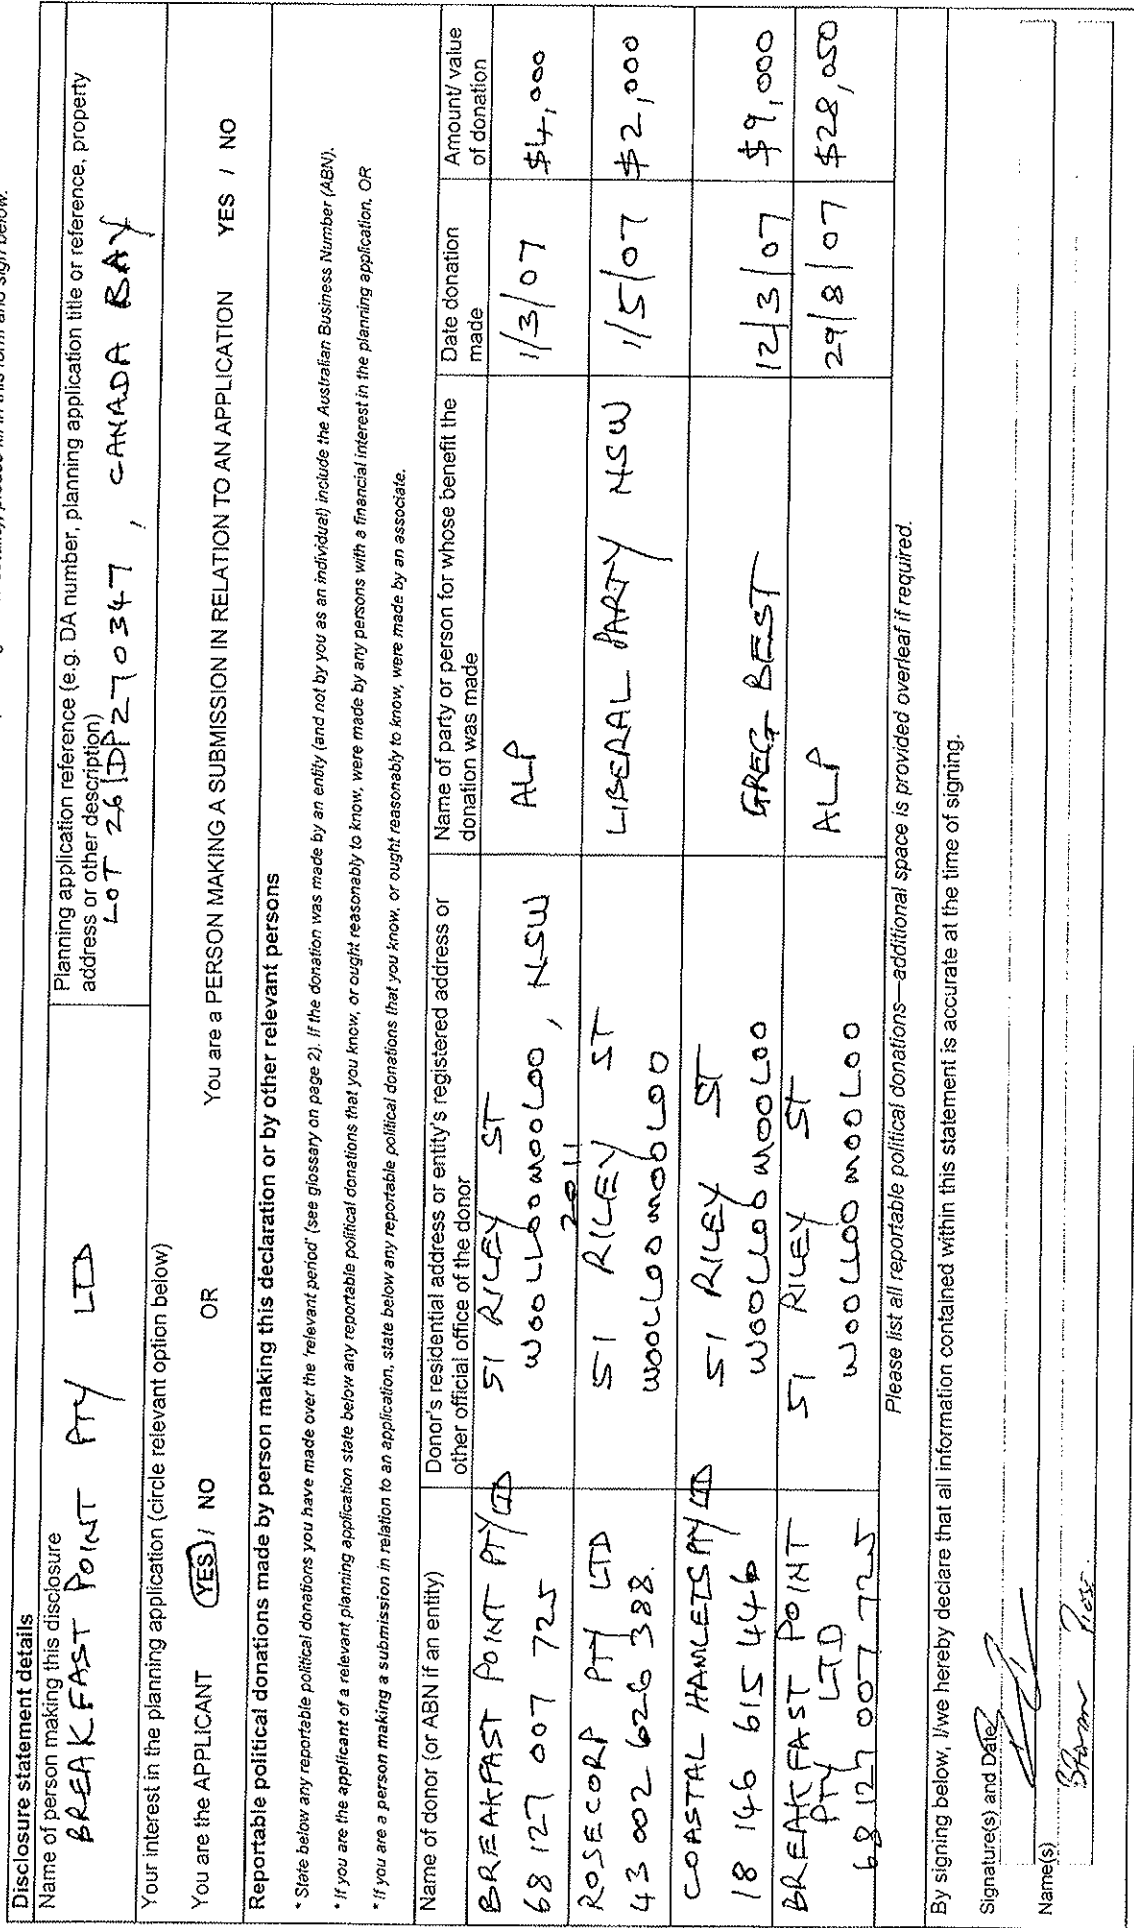 Disclosure statement details
Name of person making this disclosure
BREAKFAST POINT PTY LTD
Planning application reference (e.g. DA number, planning application title or reference, property
address or other description)
LOT 26/DP270347, CANADA BAY
Your interest in the planning application (circle relevant option below)
You are the APPLICANT YES / NO OR You are a PERSON MAKING A SUBMISSION IN RELATION TO AN APPLICATION YES / NO
Reportable political donations made by person making this declaration or by other relevant persons
* State below any reportable political donations you have made over the 'relevant period' (see glossary on page 2). If the donation was made by an entity (and not by you as an individual) include the Australian Business Number (ABN).
* If you are the applicant of a relevant planning application state below any reportable political donations that you know, or ought reasonably to know, were made by any persons with a financial interest in the planning application, OR
* If you are a person making a submission in relation to an application, state below any reportable political donations that you know, or ought reasonably to know, were made by an associate.
Name of donor (or ABN if an entity)
Donor's residential address or entity's registered address or
other official office of the donor
Name of party or person for whose benefit the
donation was made
Date donation
made
Amount/ value
of donation
BREAKFAST POINT PTY LTD
68 127 007 725
51 RILEY ST
WOOLLOOMOOLOO, NSW
2011
ALP
1/3/07
$4,000
ROSECORP PTY LTD
43 002 626 388.
51 RILEY ST
WOOLLOOMOOLOO
LIBERAL PARTY NSW
1/5/07
$2,000
COASTAL HAMLETS PTY LTD
18 146 615 446
51 RILEY ST
WOOLLOOMOOLOO
GREG BEST
12/3/07
$9,000
BREAKFAST POINT
PTY LTD
68 127 007 725
51 RILEY ST
WOOLLOOMOOLOO
ALP
29/8/07
$28,050
Please list all reportable political donations—additional space is provided overleaf if required.
By signing below, I/we hereby declare that all information contained within this statement is accurate at the time of signing.
Signature(s) and Date
Name(s)